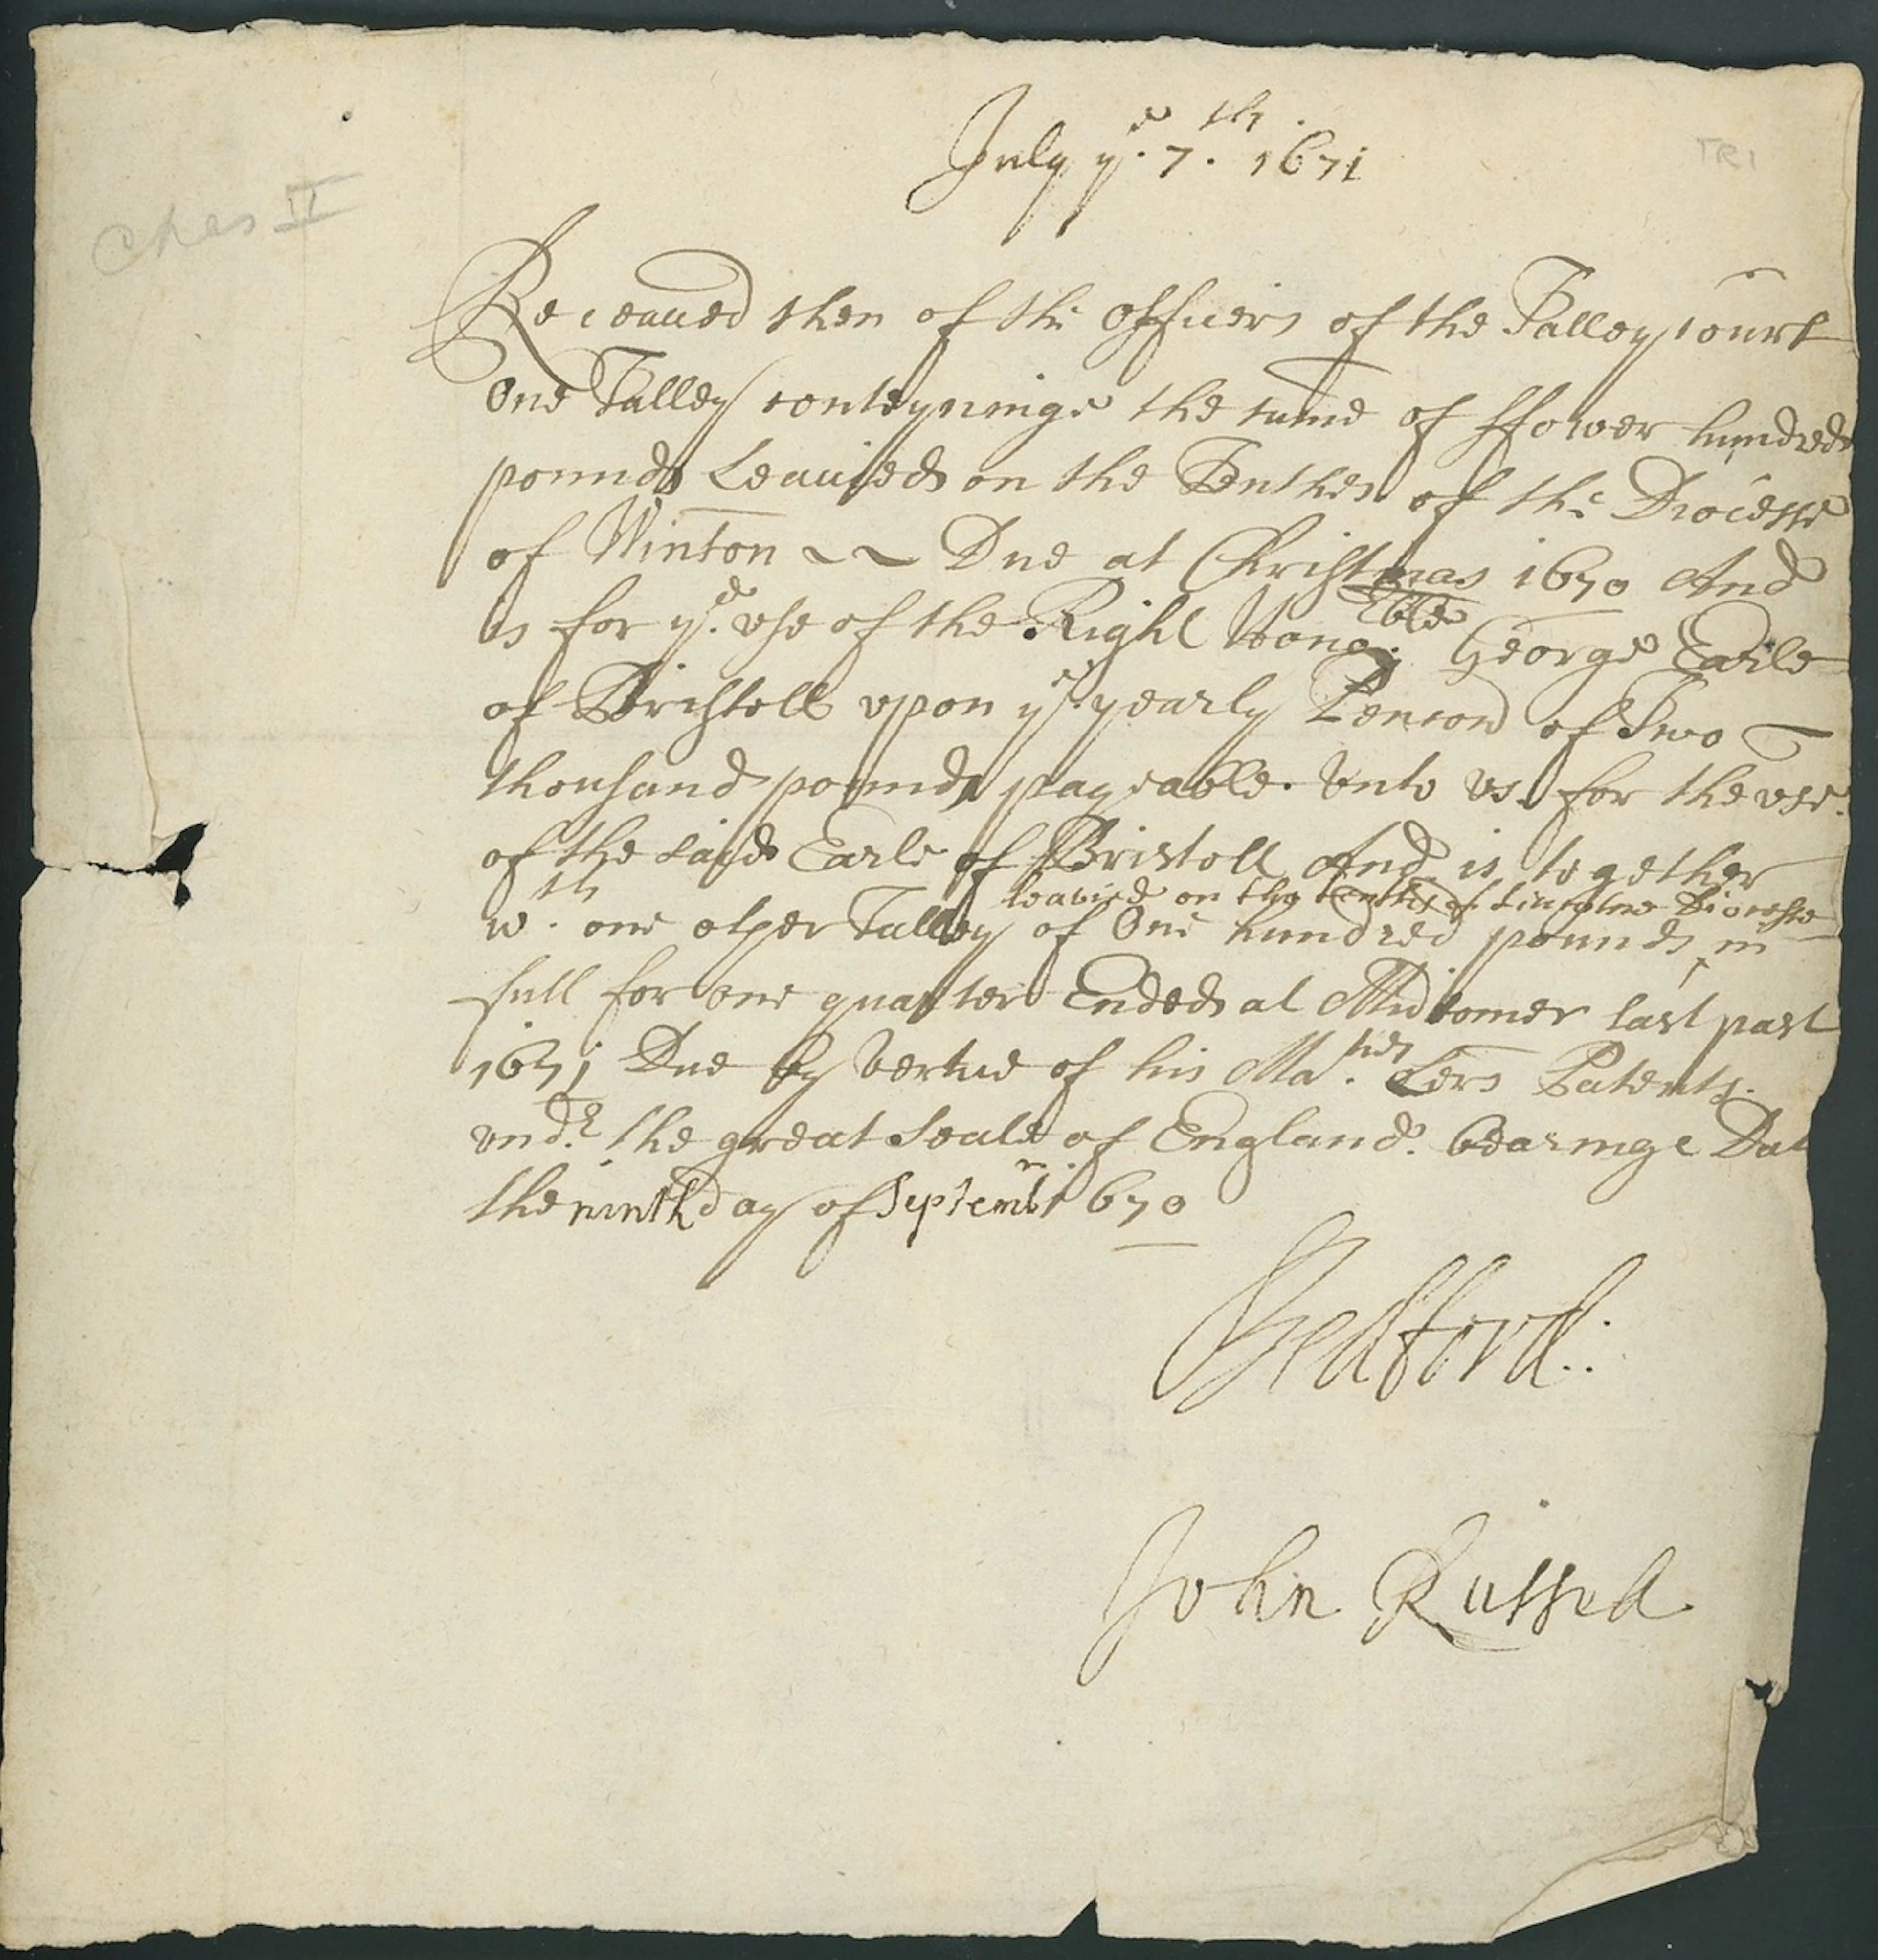 July ye. 7th. 1671
TR1
Chas II
Receaued then of the Officers of the Talley Court
One Talley conteyninge the sume of ffower hundred
pounds Leauied on the Tenthes of the Diocesse
of Winton Due at Christmas 1670 And
is for ye. vse of the Right Honoble. George Earle
of Bristoll vpon ye. yearly Pencon of Two
thousand pounds payeable. Vnto vs. for the vse.
of the said Earle of Bristoll And is together
leavied on the tenths of Lincolne Diocesse
wth. one other Talley of One hundred pounds in
full for one quarter Ended at Midsomer last past
1671 Due by Vertue of his Maties. Lers Patents.
vndr. the great Seale of England. bearinge Dat
the ninth day of Septembr 1670
Bedford:.
John Russell